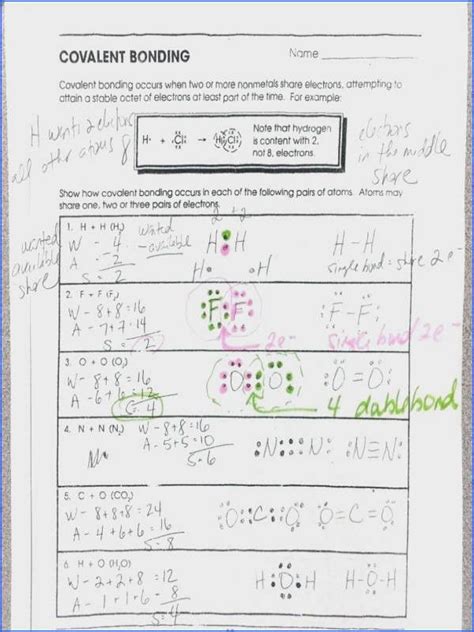 COVALENT BONDING
Name
Covalent bonding occurs when two or more nonmetals share electrons, attempting to
attain a stable octet of electrons at least part of the time. For example:
H wants 2 electrons
all other atoms 8
H· + ·Cl: → H:Cl:
Note that hydrogen
is content with 2,
not 8, electrons.
electrons
in the middle
share
Show how covalent bonding occurs in each of the following pairs of atoms. Atoms may
share one, two or three pairs of electrons.
wanted
available
share
1. H + H (H₂)
W - 4
A - 2
S = 2
wanted
- available
2 + 2
H : H
H· ·H
H-H
single bond = share 2 e⁻
2. F + F (F₂)
W - 8+8=16
A - 7+7=14
S = 2
:F:F:
2e⁻
:F-F:
single bond 2e⁻
3. O + O (O₂)
W - 8+8=16
A - 6+6=12
S = 4
:O::O:
4 double bond
:O=O:
4. N + N (N₂)
W - 8+8=16
A - 5+5=10
S = 6
:N:::N:
:N≡N:
5. C + O (CO₂)
W - 8+8+8=24
A - 4+6+6=16
S = 8
:O::C::O:
O=C=O
6. H + O (H₂O)
W - 2+2+8=12
A - 1+1+6=8
S = 4
H:O:H
H-O-H